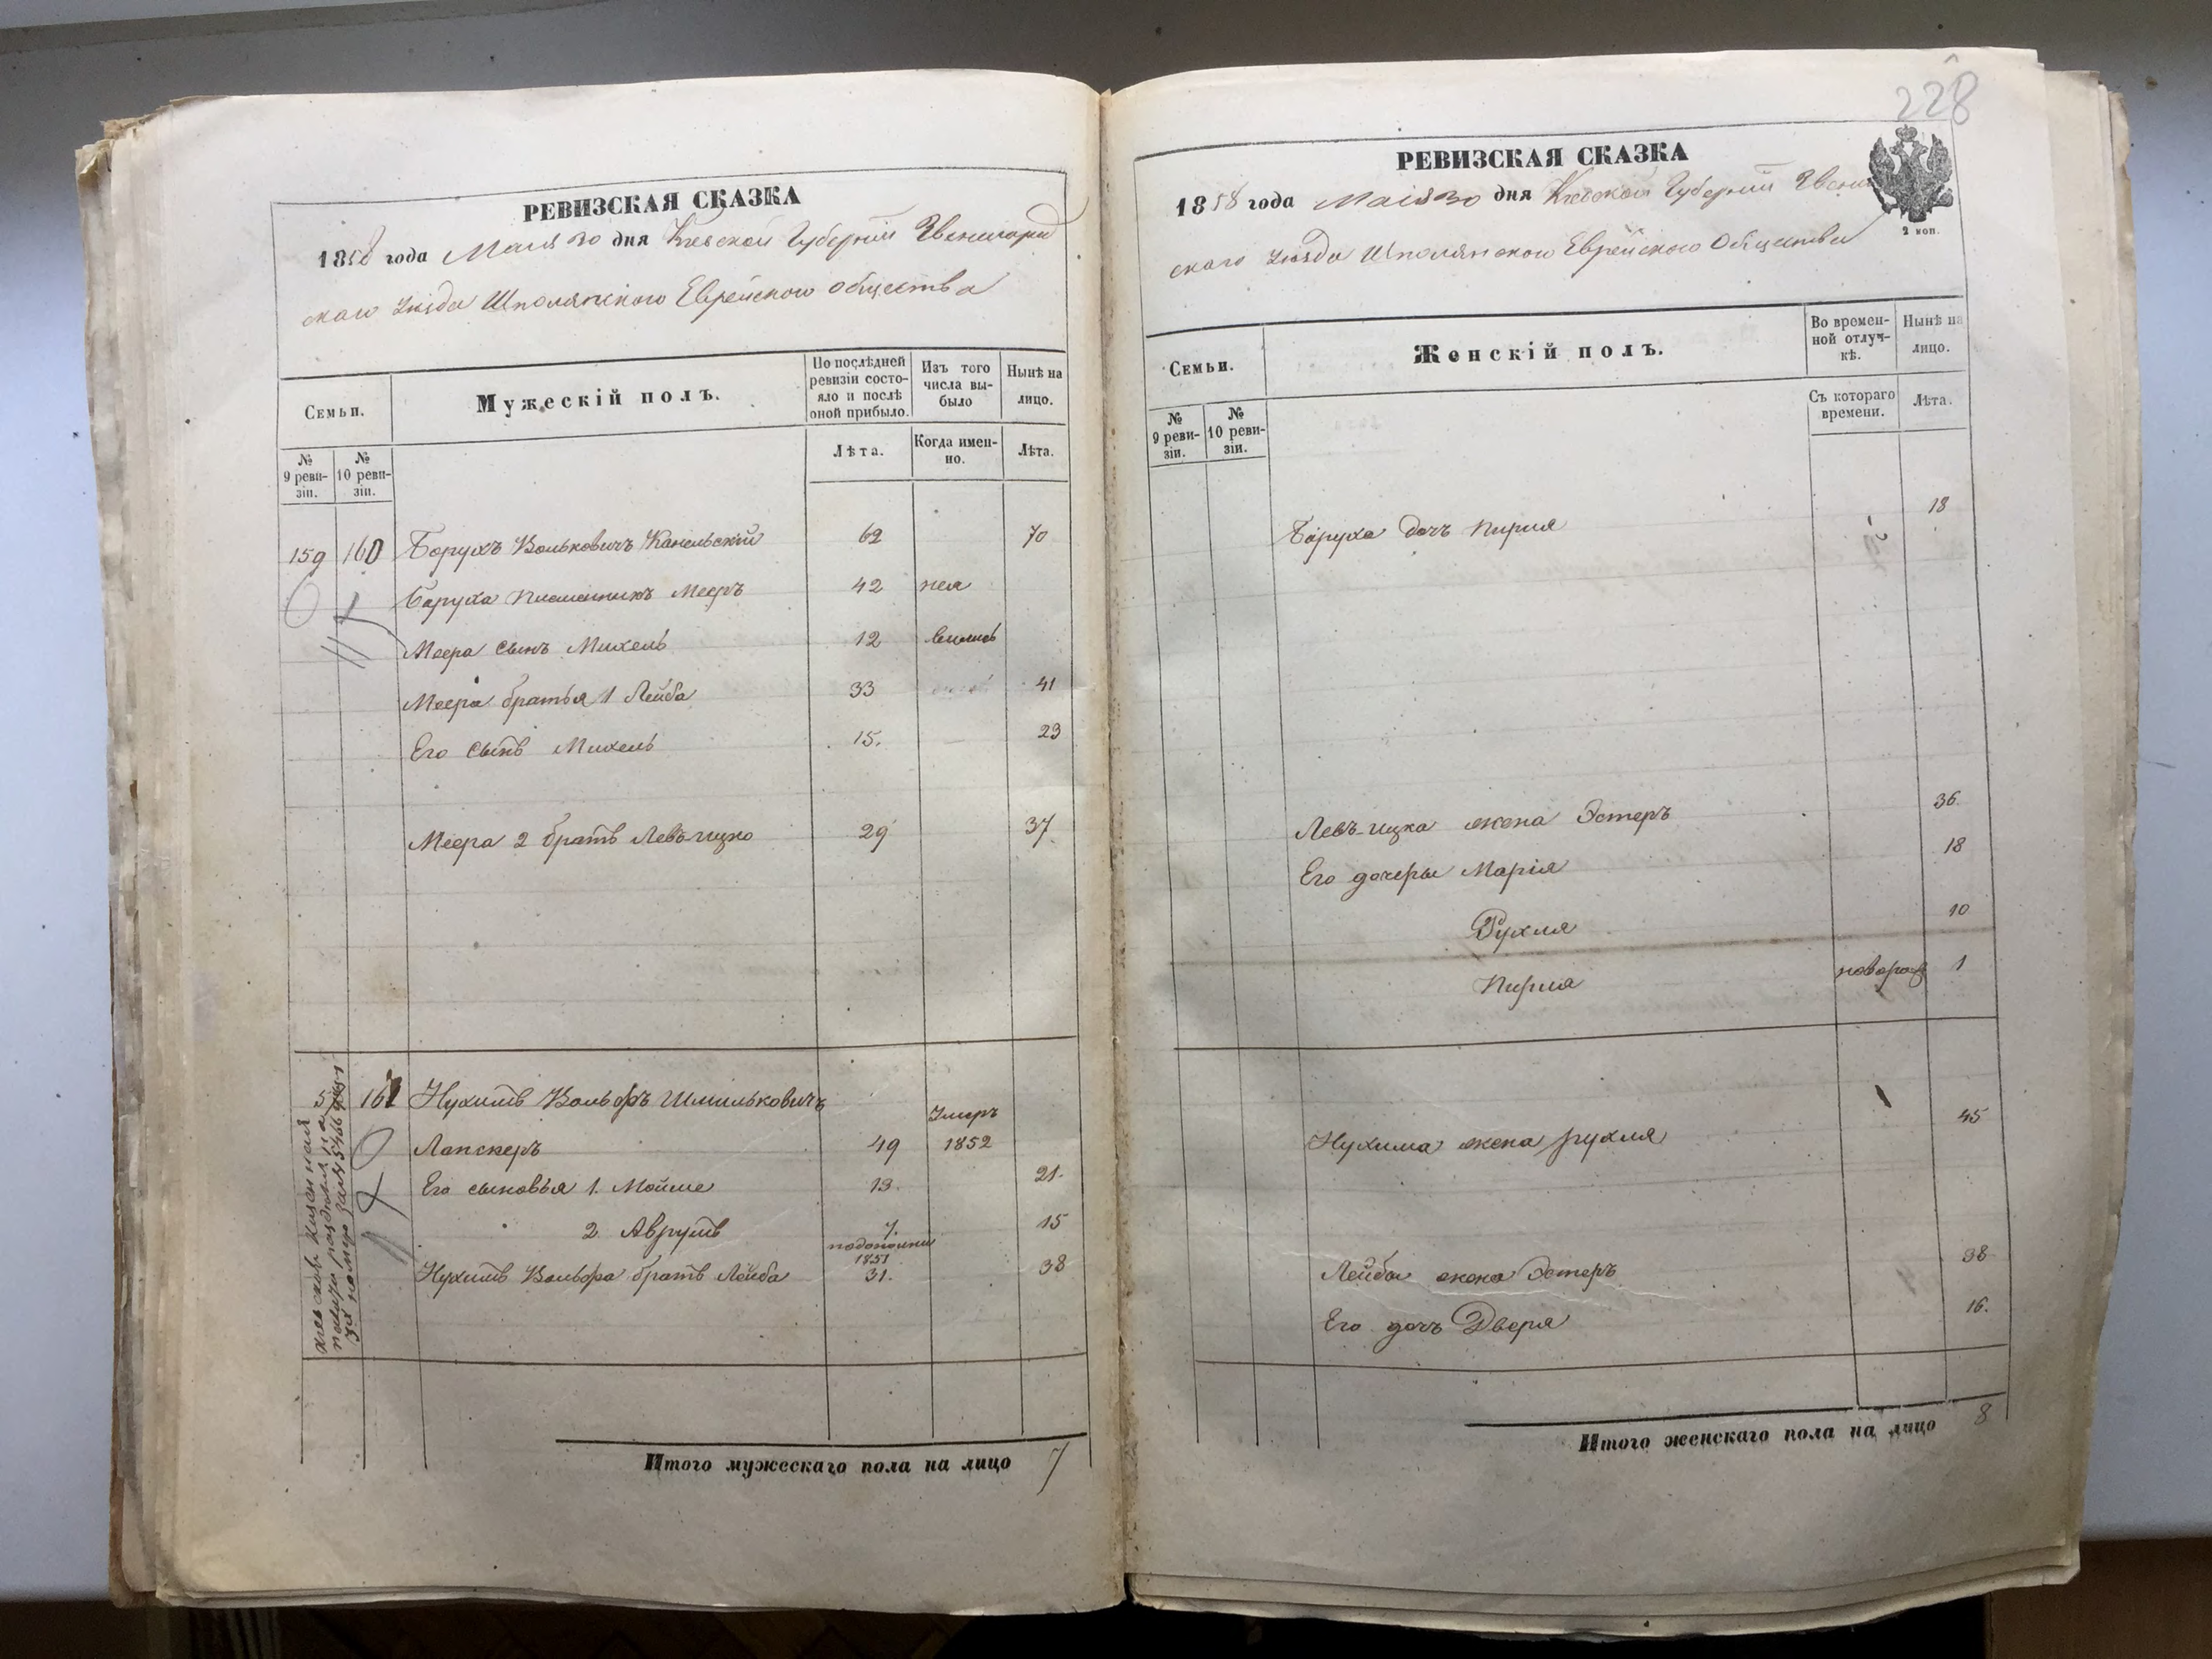 РЕВИЗСКАЯ СКАЗКА
1858 года Маія 30 дня Кіевской Губерніи Звенигород
скаго уѣзда Шполянскаго Еврейскаго общества
Семьи.
Мужескій полъ.
По послѣдней ревизіи состояло и послѣ оной прибыло.
Изъ того числа выбыло
Нынѣ на лицо.
№ 9 ревизіи.
№ 10 ревизіи.
Лѣта.
Когда именно.
Лѣта.
159 160 Борухъ Вольковичъ Каневскій 62 70
Баруха племенникъ Мееръ 42
Меера сынъ Михель 12
Меера братья 1 Лейба 33 41
Его сынъ Михель 15. 23
Меера 2 братъ Левъ-ицко 29 37
161 Нухимъ Вольфъ Шмильковичъ
Лапскеръ 49 Умеръ 1852
Его сыновья 1. Мойше 13. 21.
2. Аврумъ 7. 15
1851
Нухимъ Вольфа братъ Лейба 31. 38
Итого мужескаго пола на лицо 7
228
РЕВИЗСКАЯ СКАЗКА
1858 года Маія 30 дня Кіевской Губерніи Звени
скаго уѣзда Шполянскаго Еврейскаго Общества
2 коп.
Семьи.
Женскій полъ.
Во временной отлучкѣ.
Нынѣ на лицо.
№ 9 ревизіи.
№ 10 ревизіи.
Съ котораго времени.
Лѣта.
Баруха дочь Пирля 18
Левъ-ицка жена Эстеръ 36.
Его дочеры Марія 18
Рухля 10
Пирля новорож 1
Нухима жена рухля 45
Лейба жена Эстеръ 38
Его дочь Двейра 16.
Итого женскаго пола на лицо 8